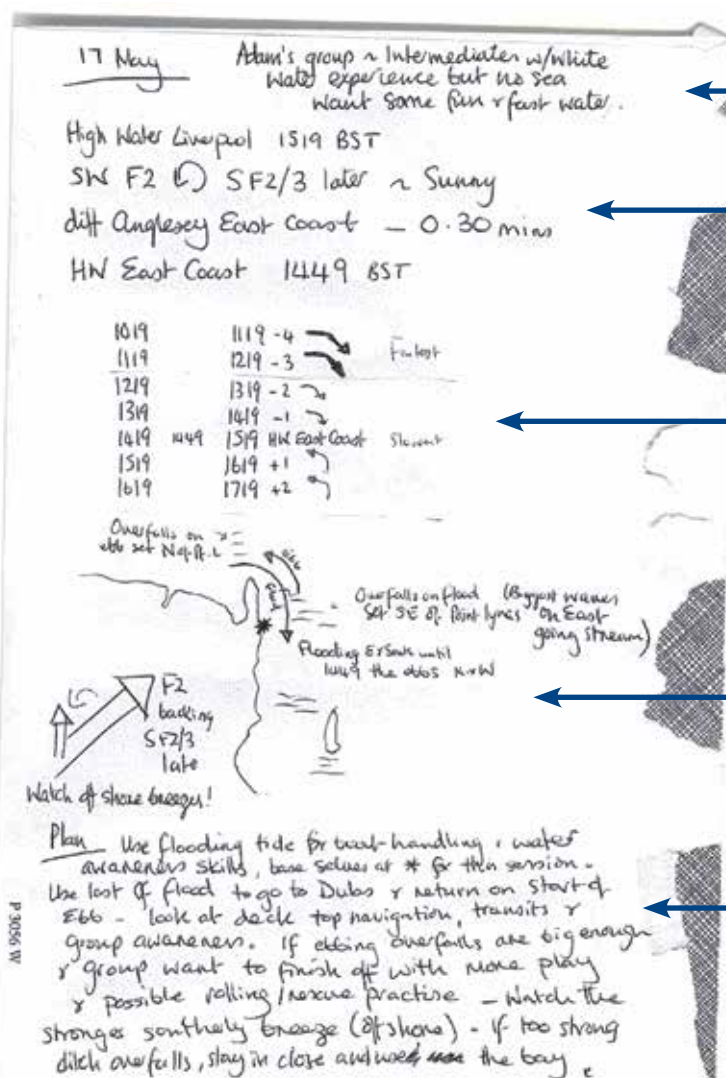 17 May
Adam's group ~ Intermediates w/white
water experience but no sea
want some fun & fast water.
High Water Liverpool 1519 BST
SW F2 SF2/3 later ~ Sunny
diff Anglesey East Coast - 0.30 mins
HW East Coast 1449 BST
1019 1119 -4
1119 1219 -3
1219 1319 -2
1319 1419 -1
1419 1449 1519 HW East Coast
1519 1619 +1
1619 1719 +2
Overfalls on
ebb set N of Pt. L
ebb
flood
Overfalls on flood (Biggest waves
Set SE of Point Lynas on East
going stream)
Flooding E & South until
1449 the ebbs N & W
F2
backing
SF2/3
late
Watch off shore breezes!
Plan Use flooding tide for boat-handling & water
awareness skills, base selves at * for this session.
Use last of flood to go to Dulas & return on start of
Ebb - look at deck top navigation, transits &
group awareness. If ebbing overfalls are big enough
& group want to finish off with more play
& possible rolling/rescue practise - Watch the
stronger southerly breeze (off shore) - if too strong
ditch overfalls, stay in close and the bay
P 3056 W